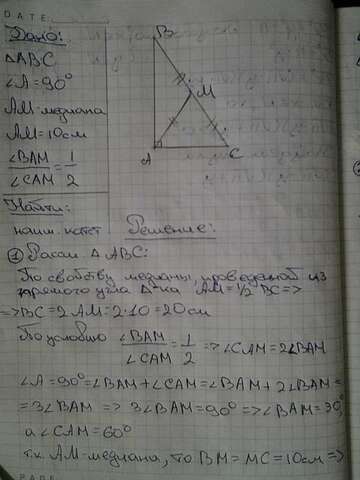 DATE:
Дано:
△ABC
∠A=90°
AM-медиана
AM=10см
∠BAM/∠CAM=1/2
Найти:
наим. катет
B
M
A
C
Решение:
① Рассм. △ABC:
По свойству медианы, проведенной из
прямого угла △-ка AM=1/2 BC=>
=>BC=2AM=2·10=20см
По условию ∠BAM/∠CAM=1/2 => ∠CAM=2∠BAM
∠A=90°=∠BAM+∠CAM=∠BAM+2∠BAM=
=3∠BAM => 3∠BAM=90°=>∠BAM=30°
а ∠CAM=60°
т.к. AM-медиана, то BM=MC=10см=>